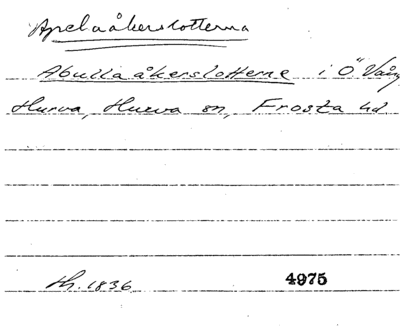 Apelaåkerslotterna
Abullaåkerslotterne i Ö Vång
Hurva, Hurva sn, Frosta hd
th. 1836 4975